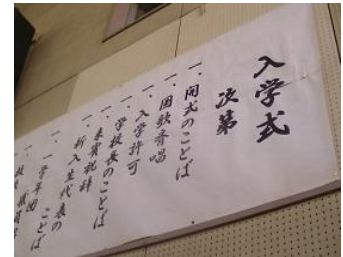 入学式
次第
一、開式のことば
一、国歌斉唱
一、入学許可
一、学校長のことば
一、来賓祝辞
一、新入生代表の
ことば
一、一学年団